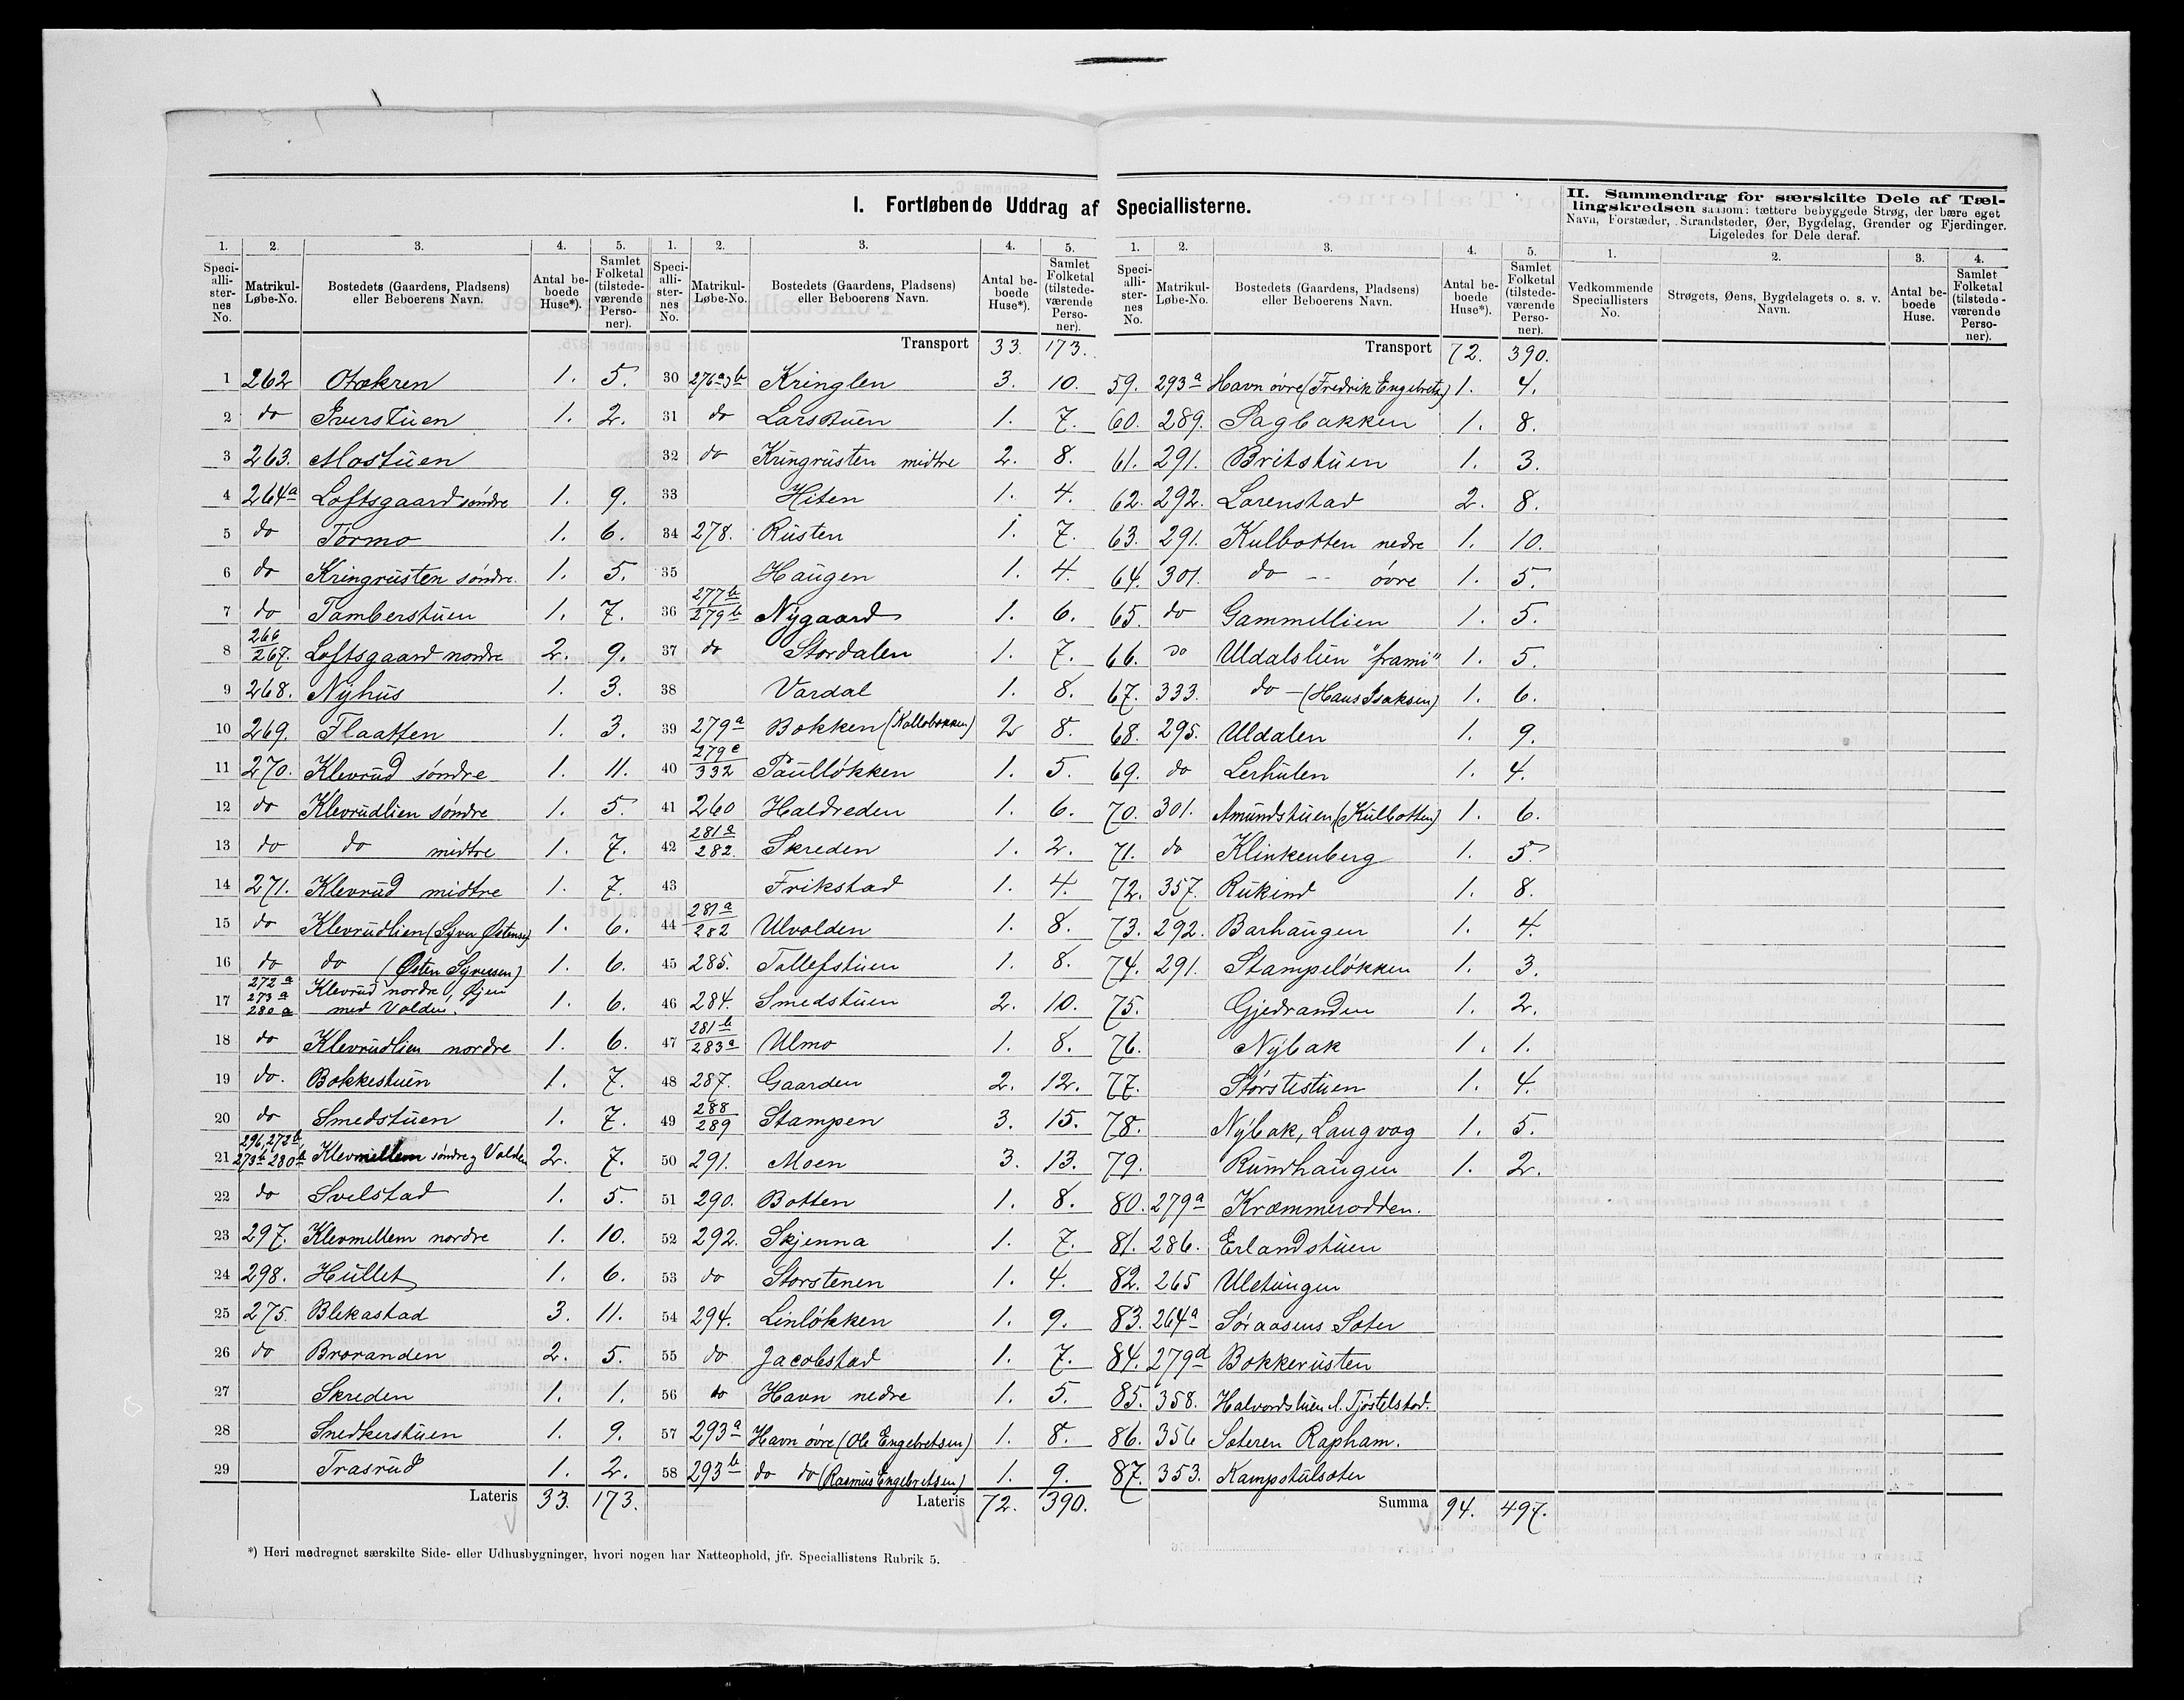 I. Fortløbende Uddrag af Speciallisterne.
II. Sammendrag for særskilte Dele af Tæl-
lingskredsen saasom: tættere bebyggede Strøg, der bære eget
Navn, Forstæder, Strandsteder, Øer, Bygdelag, Grender og Fjerdinger.
Ligeledes for Dele deraf.
1. 2. 3. 4. 5.
Speci-
alli-
ster-
nes
No.
Matrikul-
Løbe-No.
Bostedets (Gaardens, Pladsens)
eller Beboerens Navn.
Antal be-
boede
Huse*).
Samlet
Folketal
(tilstede-
værende
Perso-
ner).
1 262 Otækren 1. 5.
2 do Iverstuen 1. 2.
3 263. Mostuen
4 264a Loftsgaard søndre 1. 9.
5 do Tormo 1. 6.
6 do Kringrusten søndre. 1. 5.
7 do Tamberstuen 1. 7.
8 266/267. Loftsgaard nordre 2. 9.
9 268. Nyhus 1. 3.
10 269. Flaatten 1. 3.
11 270. Klevrud søndre 1. 11.
12 do Klevrudlien søndre 1. 5.
13 do do midtre 1. 7.
14 271. Klevrud midtre 1. 7.
15 do Klevrudlien (Syver Østensen) 1. 6.
16 do do (Østen Syversen) 1. 6.
17 272a 273a 280a Klevrud nordre, Øjen
med Volden. 1. 6.
18 do Klevrudlien nordre 1. 6.
19 do. Bokkestuen 1. 7.
20 do Smedstuen 1. 7.
21 296, 272b, 273b 280b Klevmellem søndre g Volden 2. 7.
22 do Svelstad 1. 5.
23 297. Klevmellem nordre 1. 10.
24 298. Hullet 1. 6.
25 275. Blekastad 3. 11.
26 do Broranden 2. 5.
27 Skreden 1. 1.
28 Snedkerstuen 1. 9.
29 Trasrud 1. 2.
Lateris 33. 173.
1. 2. 3. 4. 5.
Speci-
alli-
ster-
nes
No.
Matrikul-
Løbe-No.
Bostedets (Gaardens, Pladsens)
eller Beboerens Navn.
Antal be-
boede
Huse*).
Samlet
Folketal
(tilstede-
værende
Perso-
ner).
Transport 33. 173.
30 276a,b Kringlen 3. 10.
31 do Larsstuen 1. 7.
32 do Kringrusten midtre 2. 8.
33 Hiten 1. 4.
34 278. Rusten 1. 7.
35 Haugen 1. 4.
36 277b/279b Nygaard 1. 6.
37 do Stordalen 1. 7.
38 Vardal 1. 8.
39 279a Bokken (Kallebakken) 2 8.
40 279c/332 Paulløkken 1. 5.
41 260 Haldreden 1. 6.
42 281a/282. Skreden 1. 2.
43 Frikstad 1. 4.
44 281a/282 Ulvolden 1. 8.
45 285. Tollefstuen 1. 8.
46 284. Smedstuen 2. 10.
47 281b/283a Ulmo 1. 8.
48 287. Gaarden 2. 12.
49 288/289 Stampen 3. 15.
50 291. Moen 3. 13.
51 290. Botten 1. 8.
52 292. Skjenna 1. 7.
53 do Storstenen 1. 4.
54 294. Linløkken 1. 9.
55 do Jacobstad 1. 7.
56 do Havn nedre 1. 5.
57 293a Havn øvre (Ole Engebretsen) 1. 8.
58 293b do do (Rasmus Engebretsen) 1. 9.
Lateris 72. 390.
1. 2. 3. 4. 5.
Speci-
alli-
ster-
nes
No.
Matrikul-
Løbe-No.
Bostedets (Gaardens, Pladsens)
eller Beboerens Navn.
Antal be-
boede
Huse*).
Samlet
Folketal
(tilstede-
værende
Perso-
ner).
Transport 72. 390.
59. 293a Havn øvre (Fredrik Engebrets) 1. 4.
60. 289. Sagbakken 1. 8.
61. 291. Britstuen 1. 3.
62. 292. Lorenstad 2. 8.
63. 291. Kulbotten nedre 1. 10.
64. 301. do -- øvre 1. 5.
65. do Gammellien 1. 5.
66. do Uldalslien "frami" 1. 5.
67. 333. do - (Hans Isaksen) 1. 6.
68. 295. Uldalen 1. 9.
69. do Lerhulen 1. 4.
70. 301. Amundstuen (Kulbotten) 1. 6.
71. do Klinkenberg 1. 5.
72. 357. Rukind 1. 8.
73. 292. Barhaugen 1. 4.
74. 291. Stampeløkken 1. 3.
75. Gjedranden 1. 2.
76. Nybak 1. 1.
77. Størstestuen 1. 4.
78. Nybak, Laugvog 1. 5.
79. Rundhaugen 1. 2.
80. 279a Kræmmerodden.
81. 286. Erlandstuen
82. 265 Uletungen
83. 264a Søraasens Sæter
84. 279d Bokkerusten
85. 358. Halvordstuen l. Tjøstelstad.
86. 356 Sæteren Rapham.
87. 353. Kampstulsæter
Summa 94. 497.
1. 2. 3. 4.
Vedkommende
Speciallisters
No.
Strøgets, Øens, Bygdelagets o. s. v.
Navn.
Antal be-
boede
Huse.
Samlet
Folketal
(tilstede-
værende
Perso-
ner).
*) Heri medregnet særskilte Side- eller Udhusbygninger, hvori nogen har Natteophold, jfr. Speciallistens Rubrik 5.